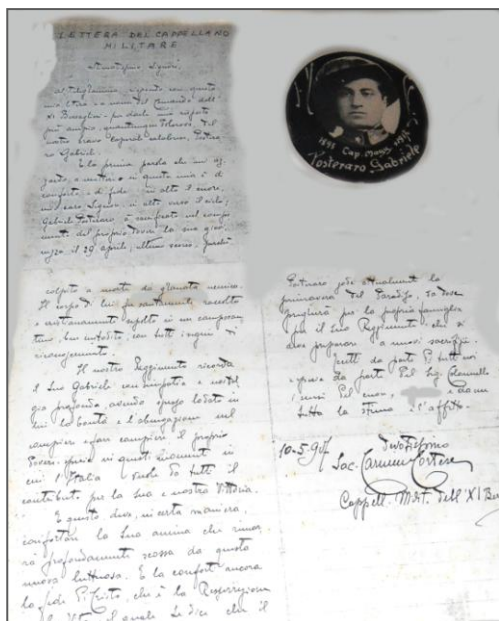 LETTERA DEL CAPPELLANO
MILITARE
al telegramma
mia lettera a nome del Comando dell'
XI Bersaglieri per darle una risposta
più ampia, quantunque dolorosa, del
nostro bravo Caporal calabrese,
Gabriele.
E la prima parola che mi
a mettere in questa mia è di
conforto e di fede: in alto il cuore,
mio caro Signore, in alto, verso il cielo;
Gabriele Posteraro è scomparso nel compi
mento del proprio dovere la sua gio
vinezza il 29 aprile, ultimo scorso, perché
colpito a morte da granata nemica.
Il corpo di lui fu santamente raccolto
e cristianamente sepolto in un camposan
tino, ben custodito, con tutti i segni di
riconoscimento.
Il nostro Reggimento ricorda
il Suo Gabriele con simpatia e nostal
gia profonda, avendo spesso lodato in
lui la bontà e l'abnegazione nel
compiere e far compiere il proprio
dovere, specie in questi momenti in
cui l'Italia vuole da tutti il
contributo per la Sua e nostra Vittoria.
E questo deve, in certa maniera,
confortare la Sua anima che rimar
rà profondamente scossa da questa
nuova luttuosa. E la conforti ancora
la fede di Cristo, che è la Resurrezione
e la Vita, il quale Le dice che il
1891 Cap. Magg. 1917
Posteraro Gabriele
Posteraro gode attualmente la
primavera del Paradiso, da dove
pregherà per la propria famiglia
e per il Suo Reggimento, che si
deve preparare a nuovi sacrifici.
da parte di tutti noi
e specie da parte del Sig. Colonnello
i sensi del cuore,
tutta la stima e l'affetto.
10-5-917
Devotissimo
Sac. Carmine Cortese
Cappell. Milit. dell'XI Ber